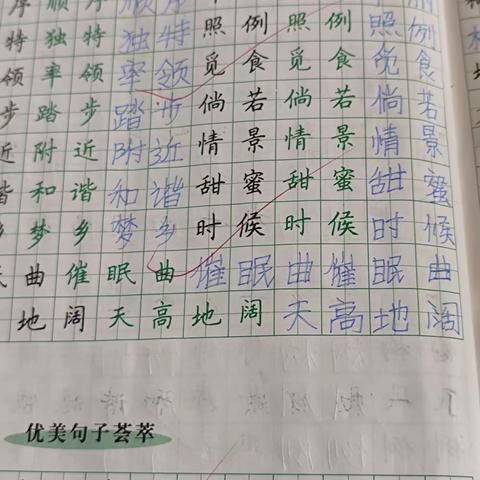 序 顺 序 顺 序
特 独 特 独 特 照 例 照 例 照 例
领 率 领 率 领 觅 食 觅 食 觅 食
步 踏 步 踏 步 倘 若 倘 若 倘 若
近 附 近 附 近 情 景 情 景 情 景
谐 和 谐 和 谐 甜 蜜 甜 蜜 甜 蜜
乡 梦 乡 梦 乡 时 候 时 候 时 候
曲 催 眠 曲 催 眠 曲 催 眠 曲
地 阔 天 高 地 阔 天 高 地 阔
优美句子荟萃